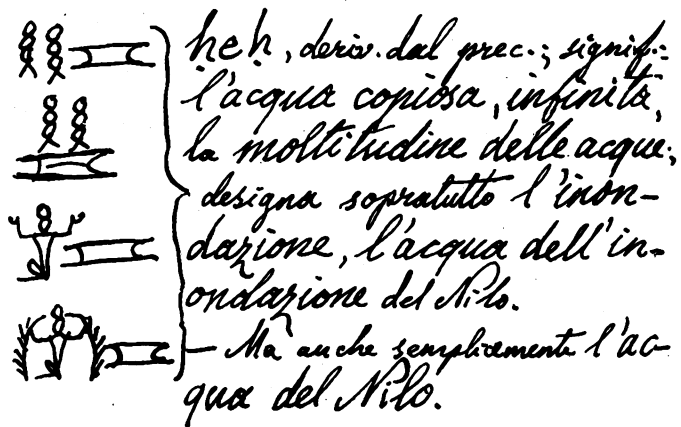 ḥeḥ, deriv. dal prec.; signif.:
l'acqua copiosa, infinita,
la moltitudine delle acque;
designa sopratutto l'inon-
dazione, l'acqua dell'in-
ondazione del Nilo.
— Ma anche semplicemente l'ac-
qua del Nilo.